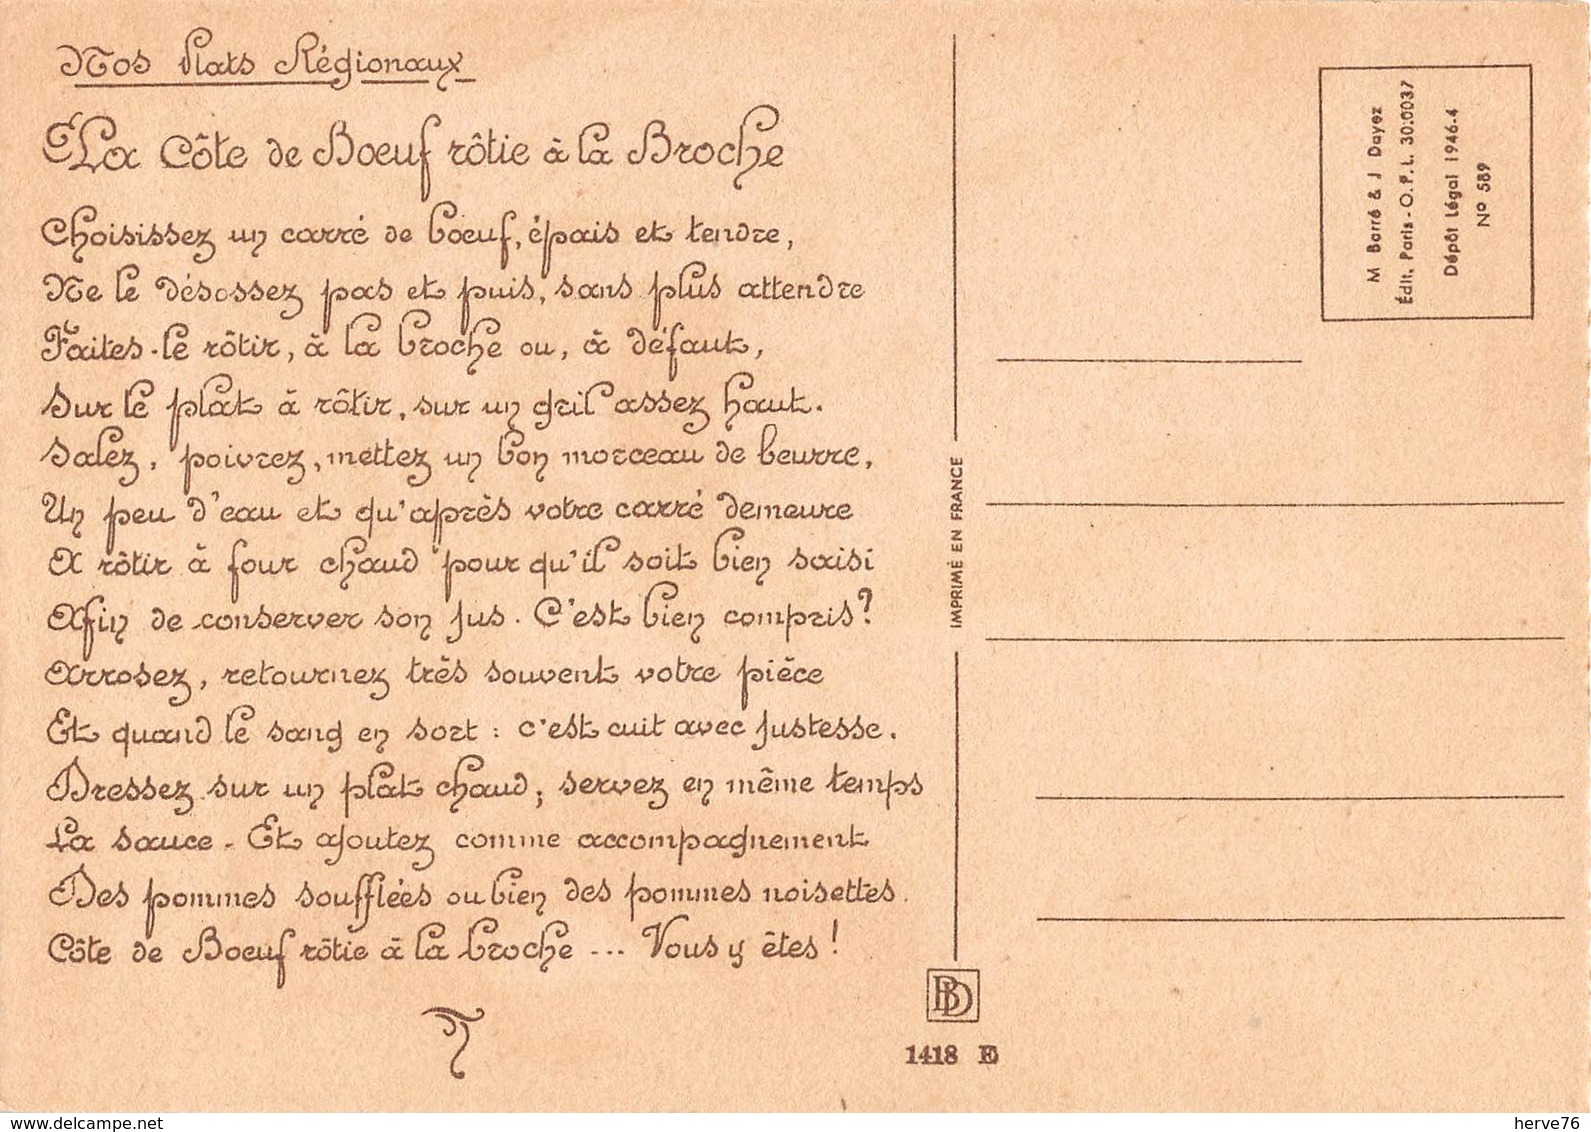 Nos Plats Régionaux
La Côte de Bœuf rôtie à la Broche
Choisissez un carré de bœuf, épais et tendre,
Ne le désossez pas et puis, sans plus attendre
Faites-le rôtir, à la broche ou, à défaut,
Sur le plat à rôtir, sur un gril assez haut.
Salez, poivrez, mettez un bon morceau de beurre,
Un peu d'eau et qu'après votre carré demeure
A rôtir à four chaud pour qu'il soit bien saisi
Afin de conserver son jus. C'est bien compris?
Arrosez, retournez très souvent votre pièce
Et quand le sang en sort : c'est cuit avec justesse.
Dressez sur un plat chaud; servez en même temps
La sauce - Et ajoutez comme accompagnement
Des pommes soufflées ou bien des pommes noisettes.
Côte de Bœuf rôtie à la broche ... Vous y êtes!
IMPRIMÉ EN FRANCE
BD
1418 E
M Barré & J Dayez
Édit. Paris - O.P.L. 30.0037
Dépôt légal 1946-4
Nº 589
delcampe.net
herve76